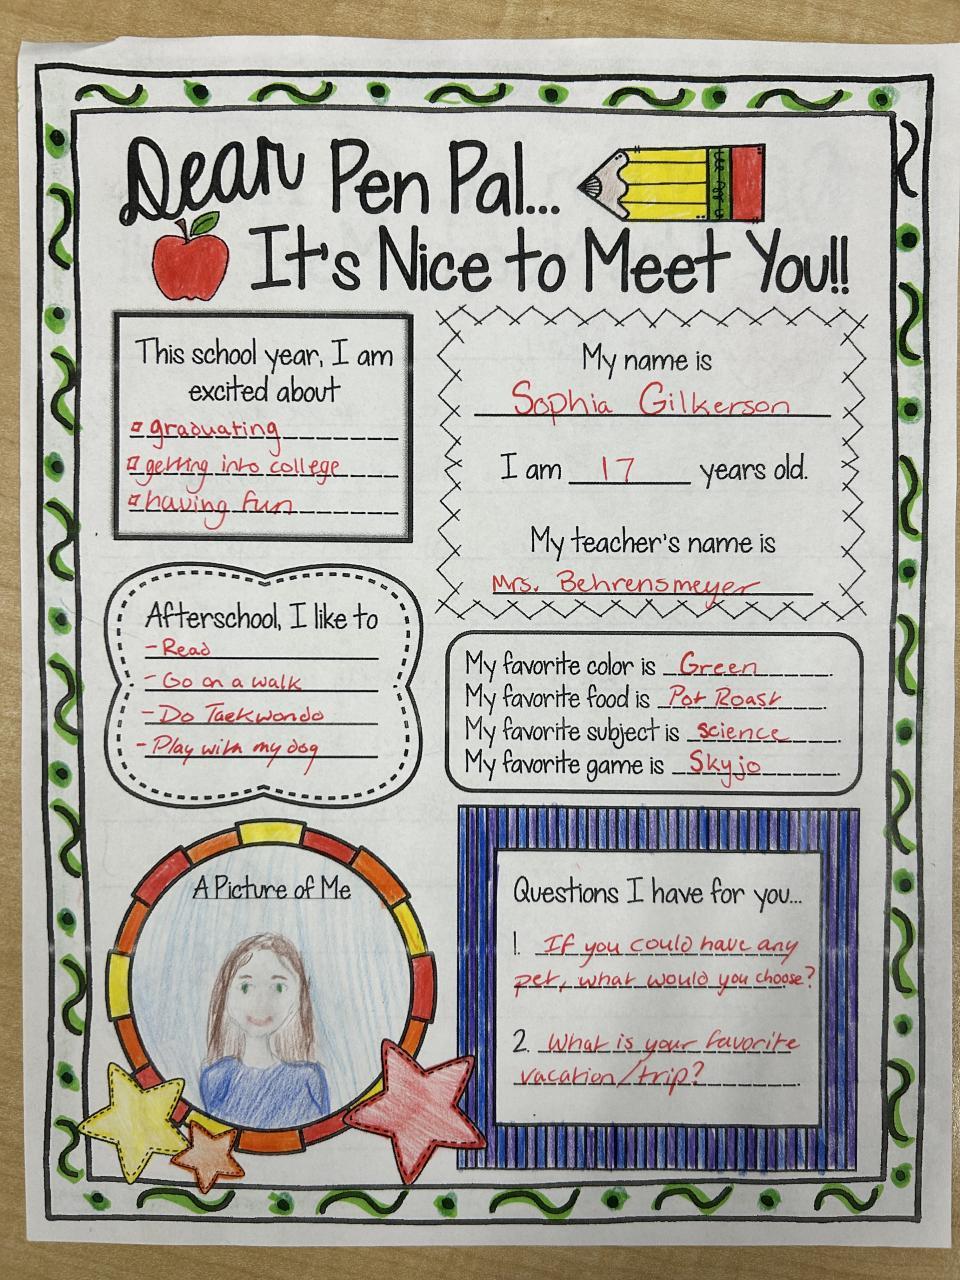 Dear Pen Pal...
It's Nice to Meet You!!
This school year, I am
excited about
graduating
getting into college
having fun
My name is
Sophia Gilkerson
I am 17 years old.
My teacher's name is
Mrs. Behrensmeyer
Afterschool, I like to
- Read
- Go on a walk
- Do Taekwondo
- Play with my dog
My favorite color is Green.
My favorite food is Pot Roast.
My favorite subject is science.
My favorite game is Skyjo.
A Picture of Me
Questions I have for you...
1. If you could have any
pet, what would you choose?
2. What is your favorite
vacation/trip?